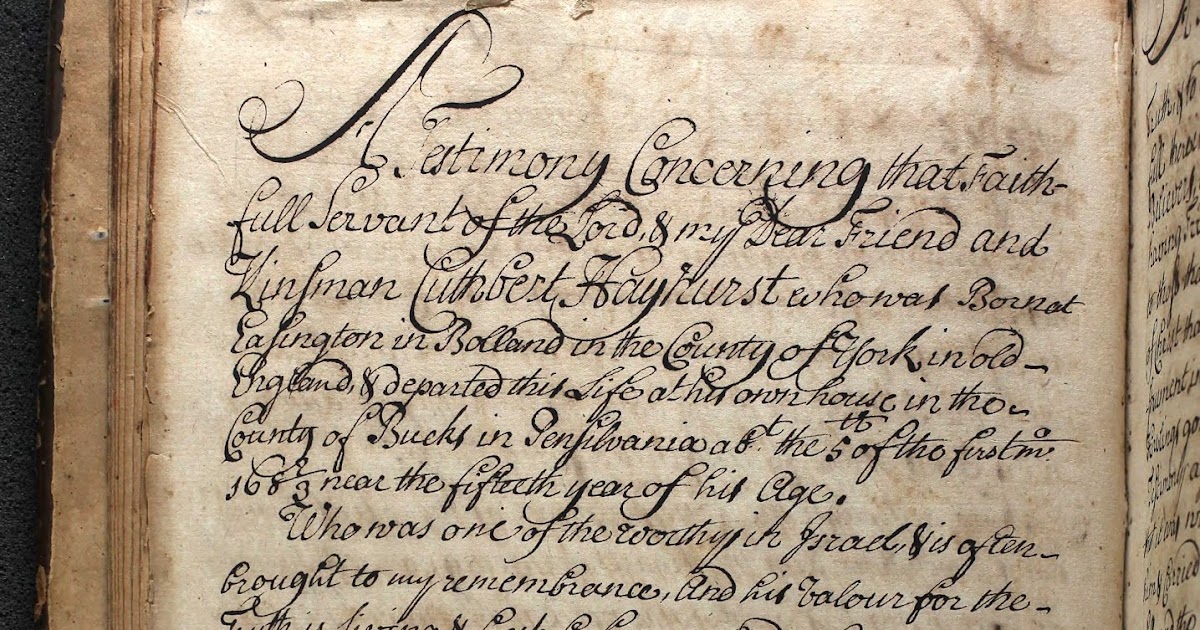 A Testimony Concerning that Faith-
full Servant of the Lord, & my Dear Friend and
Kinsman Cuthbert Hayhurst who was Born at
Easington in Bolland in the County of York in old-
England, & departed this Life at his own house in the-
County of Bucks in Pensilvania abt the 5th of the first mo
1682/3 near the fifteth year of his Age.
Who was one of the worthys in Israel, & is often-
brought to my remembrance, And his Valour for the-
Truth is living &